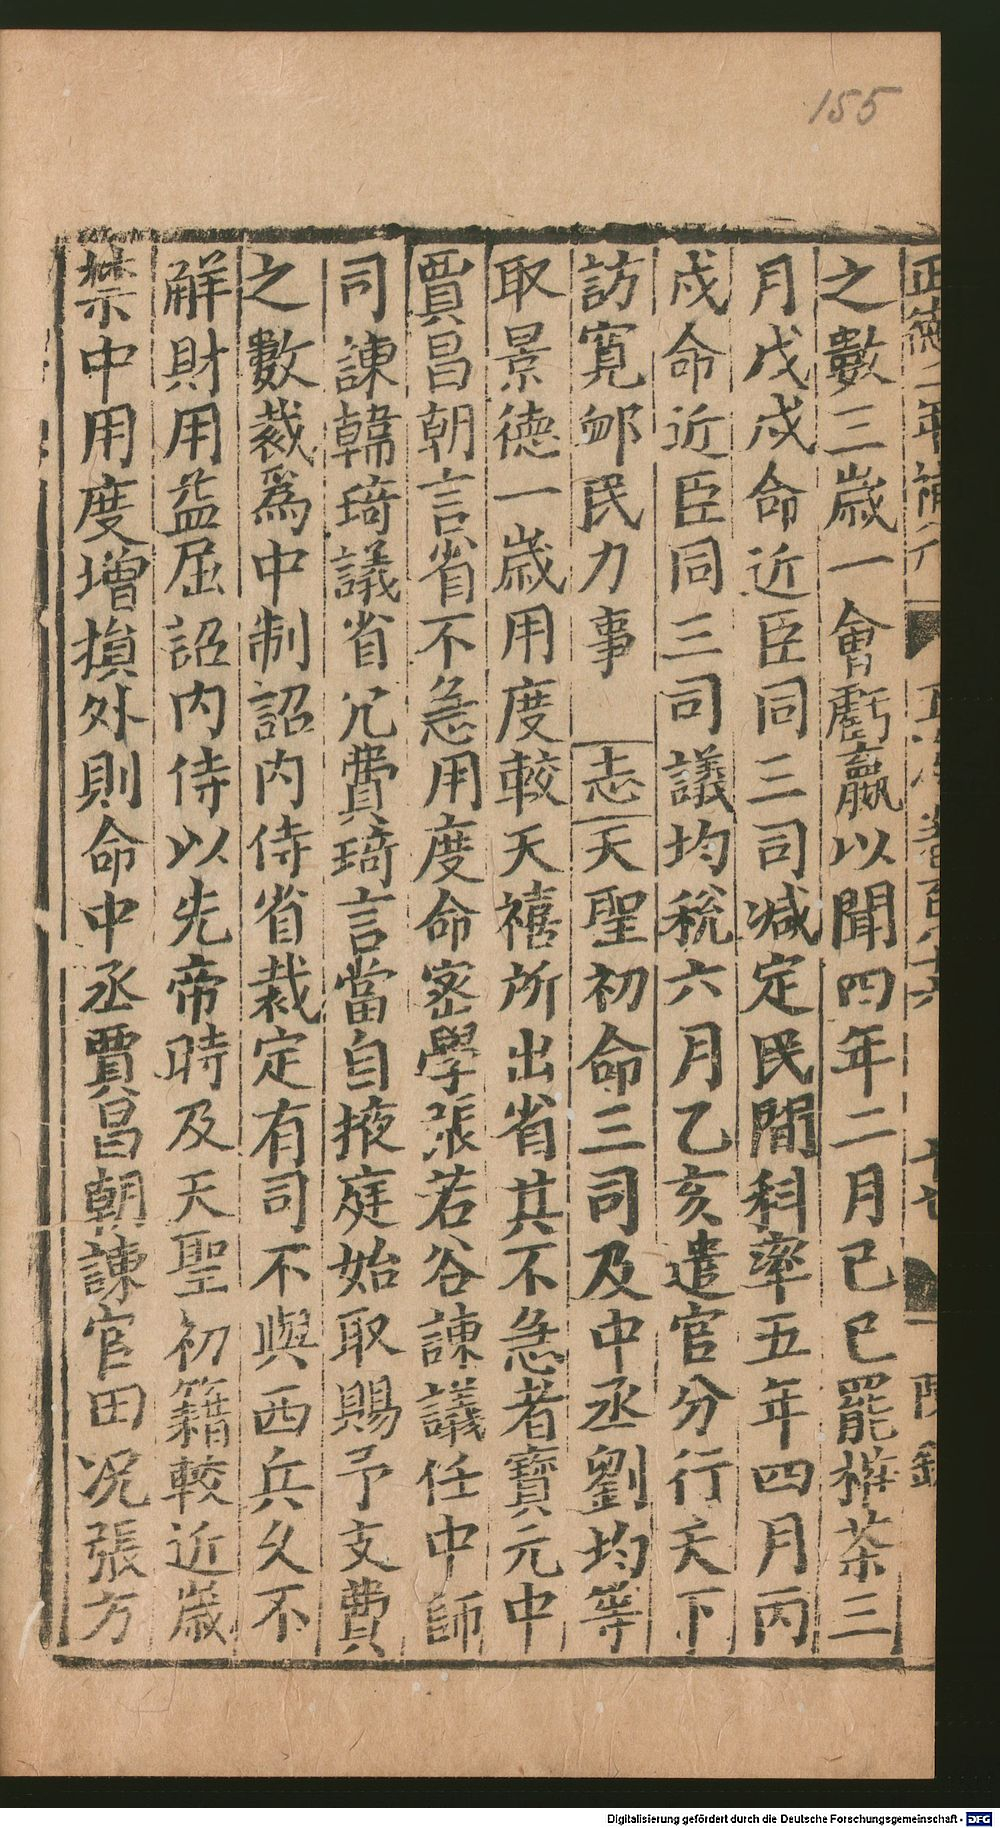 155
之數三歳一會虧贏以聞四年二月己巳罷榷茶三
月戊戌命近臣同三司减定民間科率五年四月丙
戌命近臣同三司議均税六月乙亥遣官分行天下
訪寛邺民力事 志天聖初命三司及中丞劉均等
取景德一歳用度較天禧所出省其不急者寶元中
賈昌朝言省不急用度命宻學張若谷諌議任中師
司諌韓琦議省冗費琦言當自掖庭始取賜予支費
之數裁爲中制詔内侍省裁定有司不與西兵久不
解財用益屈詔内侍以先帝時及天聖初籍較近歳
禁中用度增損外則命中丞賈昌朝諌官田况張方
Digitalisierung gefördert durch die Deutsche Forschungsgemeinschaft - DFG